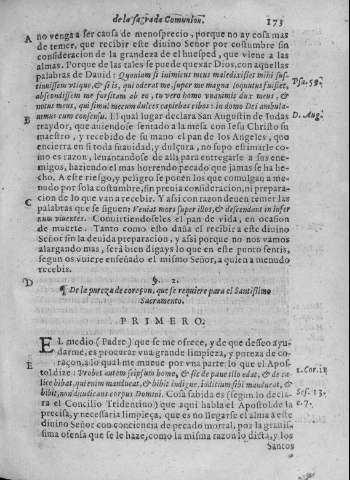 de la sagrada Comunion. 173
A no venga a ser causa de menosprecio, porque no ay cosa mas
de temer, que recibir este diuino Señor por costumbre sin
consideracion de la grandeza de el huesped, que viene a las
almas. Porque de las tales se puede quexar Dios, con aquellas
palabras de Dauid: Quoniam si inimicus meus maledixisset mihi sus- Psa. 59.
tinuissem vtique, & si is, qui oderat me, super me magna loquutus fuisset,
abscondissem me forsitam ab eo, tu vero homo vnanimis dux meus, &
notus meus, qui simul mecum dulces capiebas cibos: in domo Dei ambula-
B uimus cum consensu. El qual lugar declara San Augustin de Iudas D. Aug.
traydor, que auiendose sentado a la mesa con Iesu Christo su
maestro, y recebido de su mano el pan de los Angeles, que
encierra en si toda suauidad, y dulçura, no supo estimarle co-
mo es razon, leuantandose de alli para entregarle a sus ene-
migos, haziendo el mas horrendo pecado que jamas se ha he-
cho. A este riesgo, y peligro se ponen los que comulgan a me-
nudo por sola costumbre, sin preuia consideracion, ni prepara-
cion de lo que van a recebir. Y assi con razon deuen temer las
C palabras que se siguen: Venias mors super illos, & descendant in infer
num viuentes. Conuirtiendoseles el pan de vida, en ocasion
de muerte. Tanto como esto daña el recibir a este diuino
Señor sin la deuida preparacion, y assi porque no nos vamos
alargando mas, será bien digays lo que en este punto sentis,
segun os vuiere enseñado el mismo Señor, a quien a menudo
recebis.
D §. 2.
¶ De la pureza de coraçon, que se requiere para el Santissimo
Sacramento.
PRIMERO.
EL medio (Padre) que se me ofrece, y de que desseo ayu-
darme, es procurar vna grande limpieza, y pureza de co-
E raçon, a lo qual me mueue por vna parte lo que el Apos-
tol dize: Probet autem seipsum homo, & sic de pane illo edat, & de ca- 1. Cor. 11
lice bibat, qui enim manducat, & bibit indigne, iuditium sibi manducat, &
bibit, non dijudicans corpus Domini. Cosa sabida es (segun lo decla- Ses. 13.
ra el Concilio Tridentino) que aqui habla el Apostol de la c. 7.
precisa, y necessaria limpieça, que es no llegarse el alma a este
diuino Señor con conciencia de pecado mortal, por la grauis-
sima ofensa que se le haze, como la misma razon lo dicta, y los
Santos